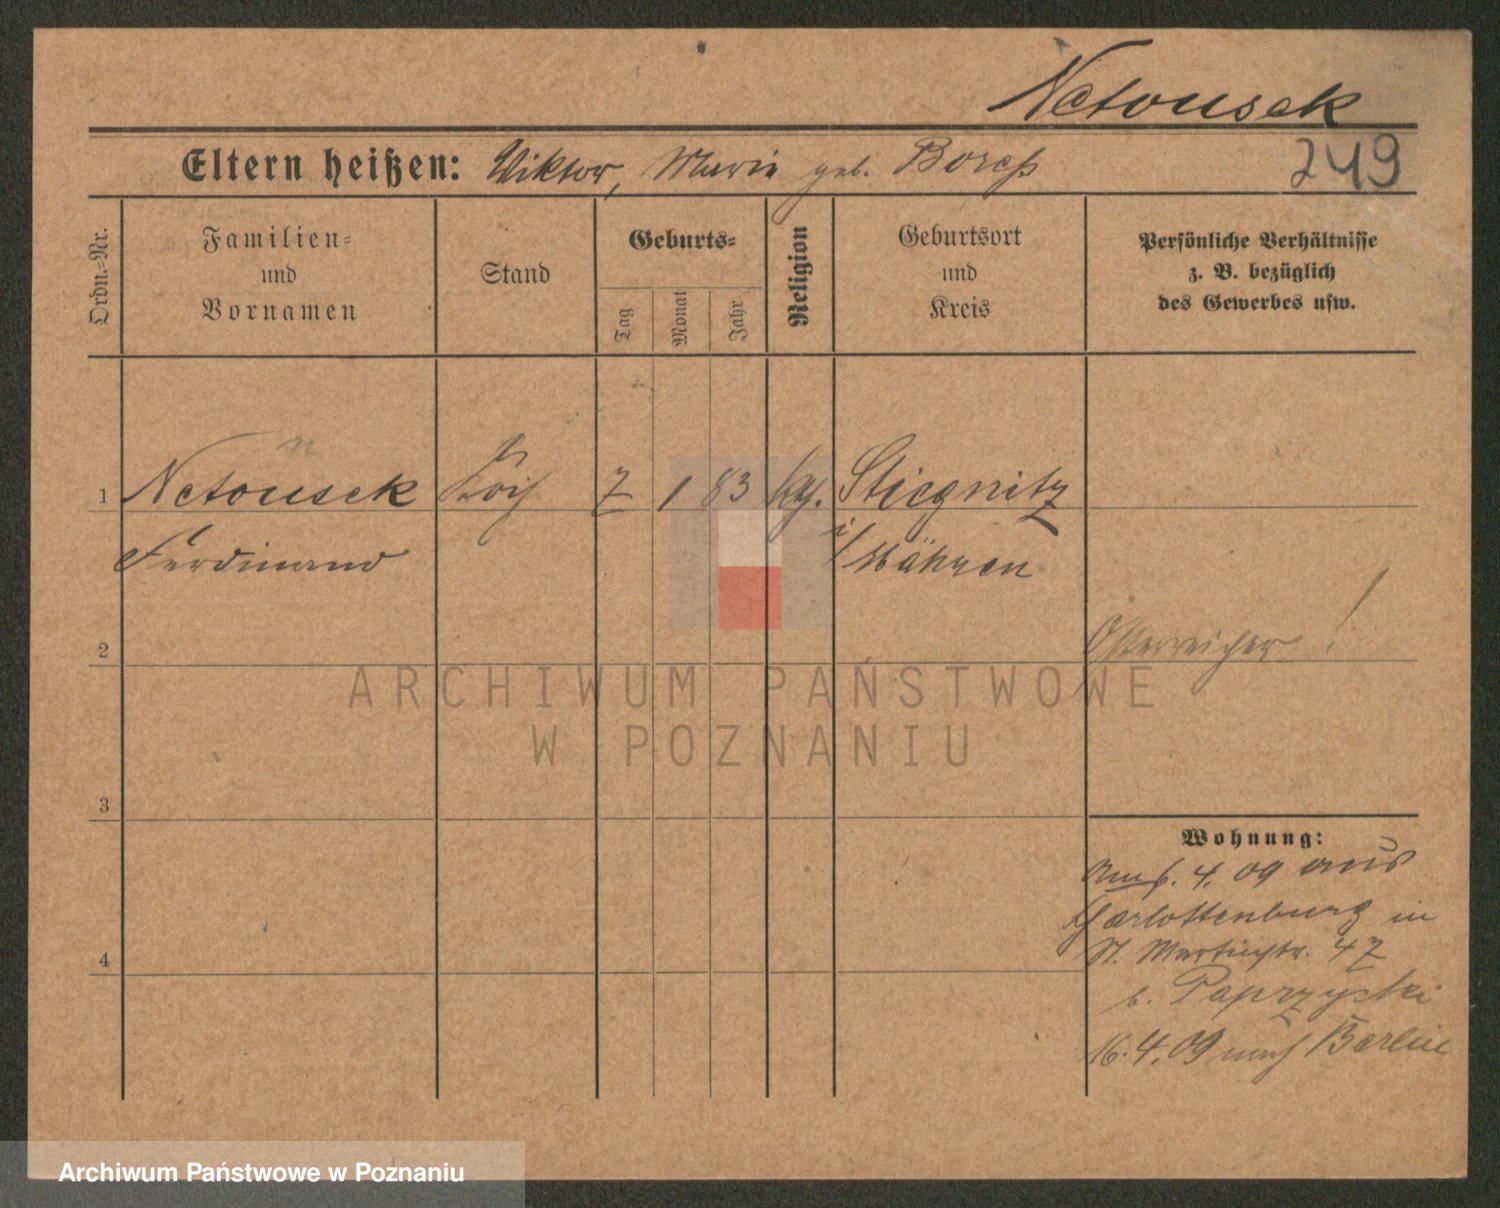 Netousek
Eltern heißen: Wiktor, Marie geb. Borch
249
Ordn.=Nr.
Familien=
und
Vornamen
Stand
Geburts=
Tag
Monat
Jahr
Religion
Geburtsort
und
Kreis
Persönliche Verhältnisse
z. B. bezüglich
des Gewerbes usw.
1 Netousek Koch 7 1 83 kath. Stiegnitz
Ferdinand i/Mähren
2 Österreicher !
3
Wohnung:
4. 09 aus
Charlottenburg in
St. Martinstr. 47
4
b. Paprzycki
16. 4. 09 nach Berlin
ARCHIWUM PAŃSTWOWE
W POZNANIU
Archiwum Państwowe w Poznaniu